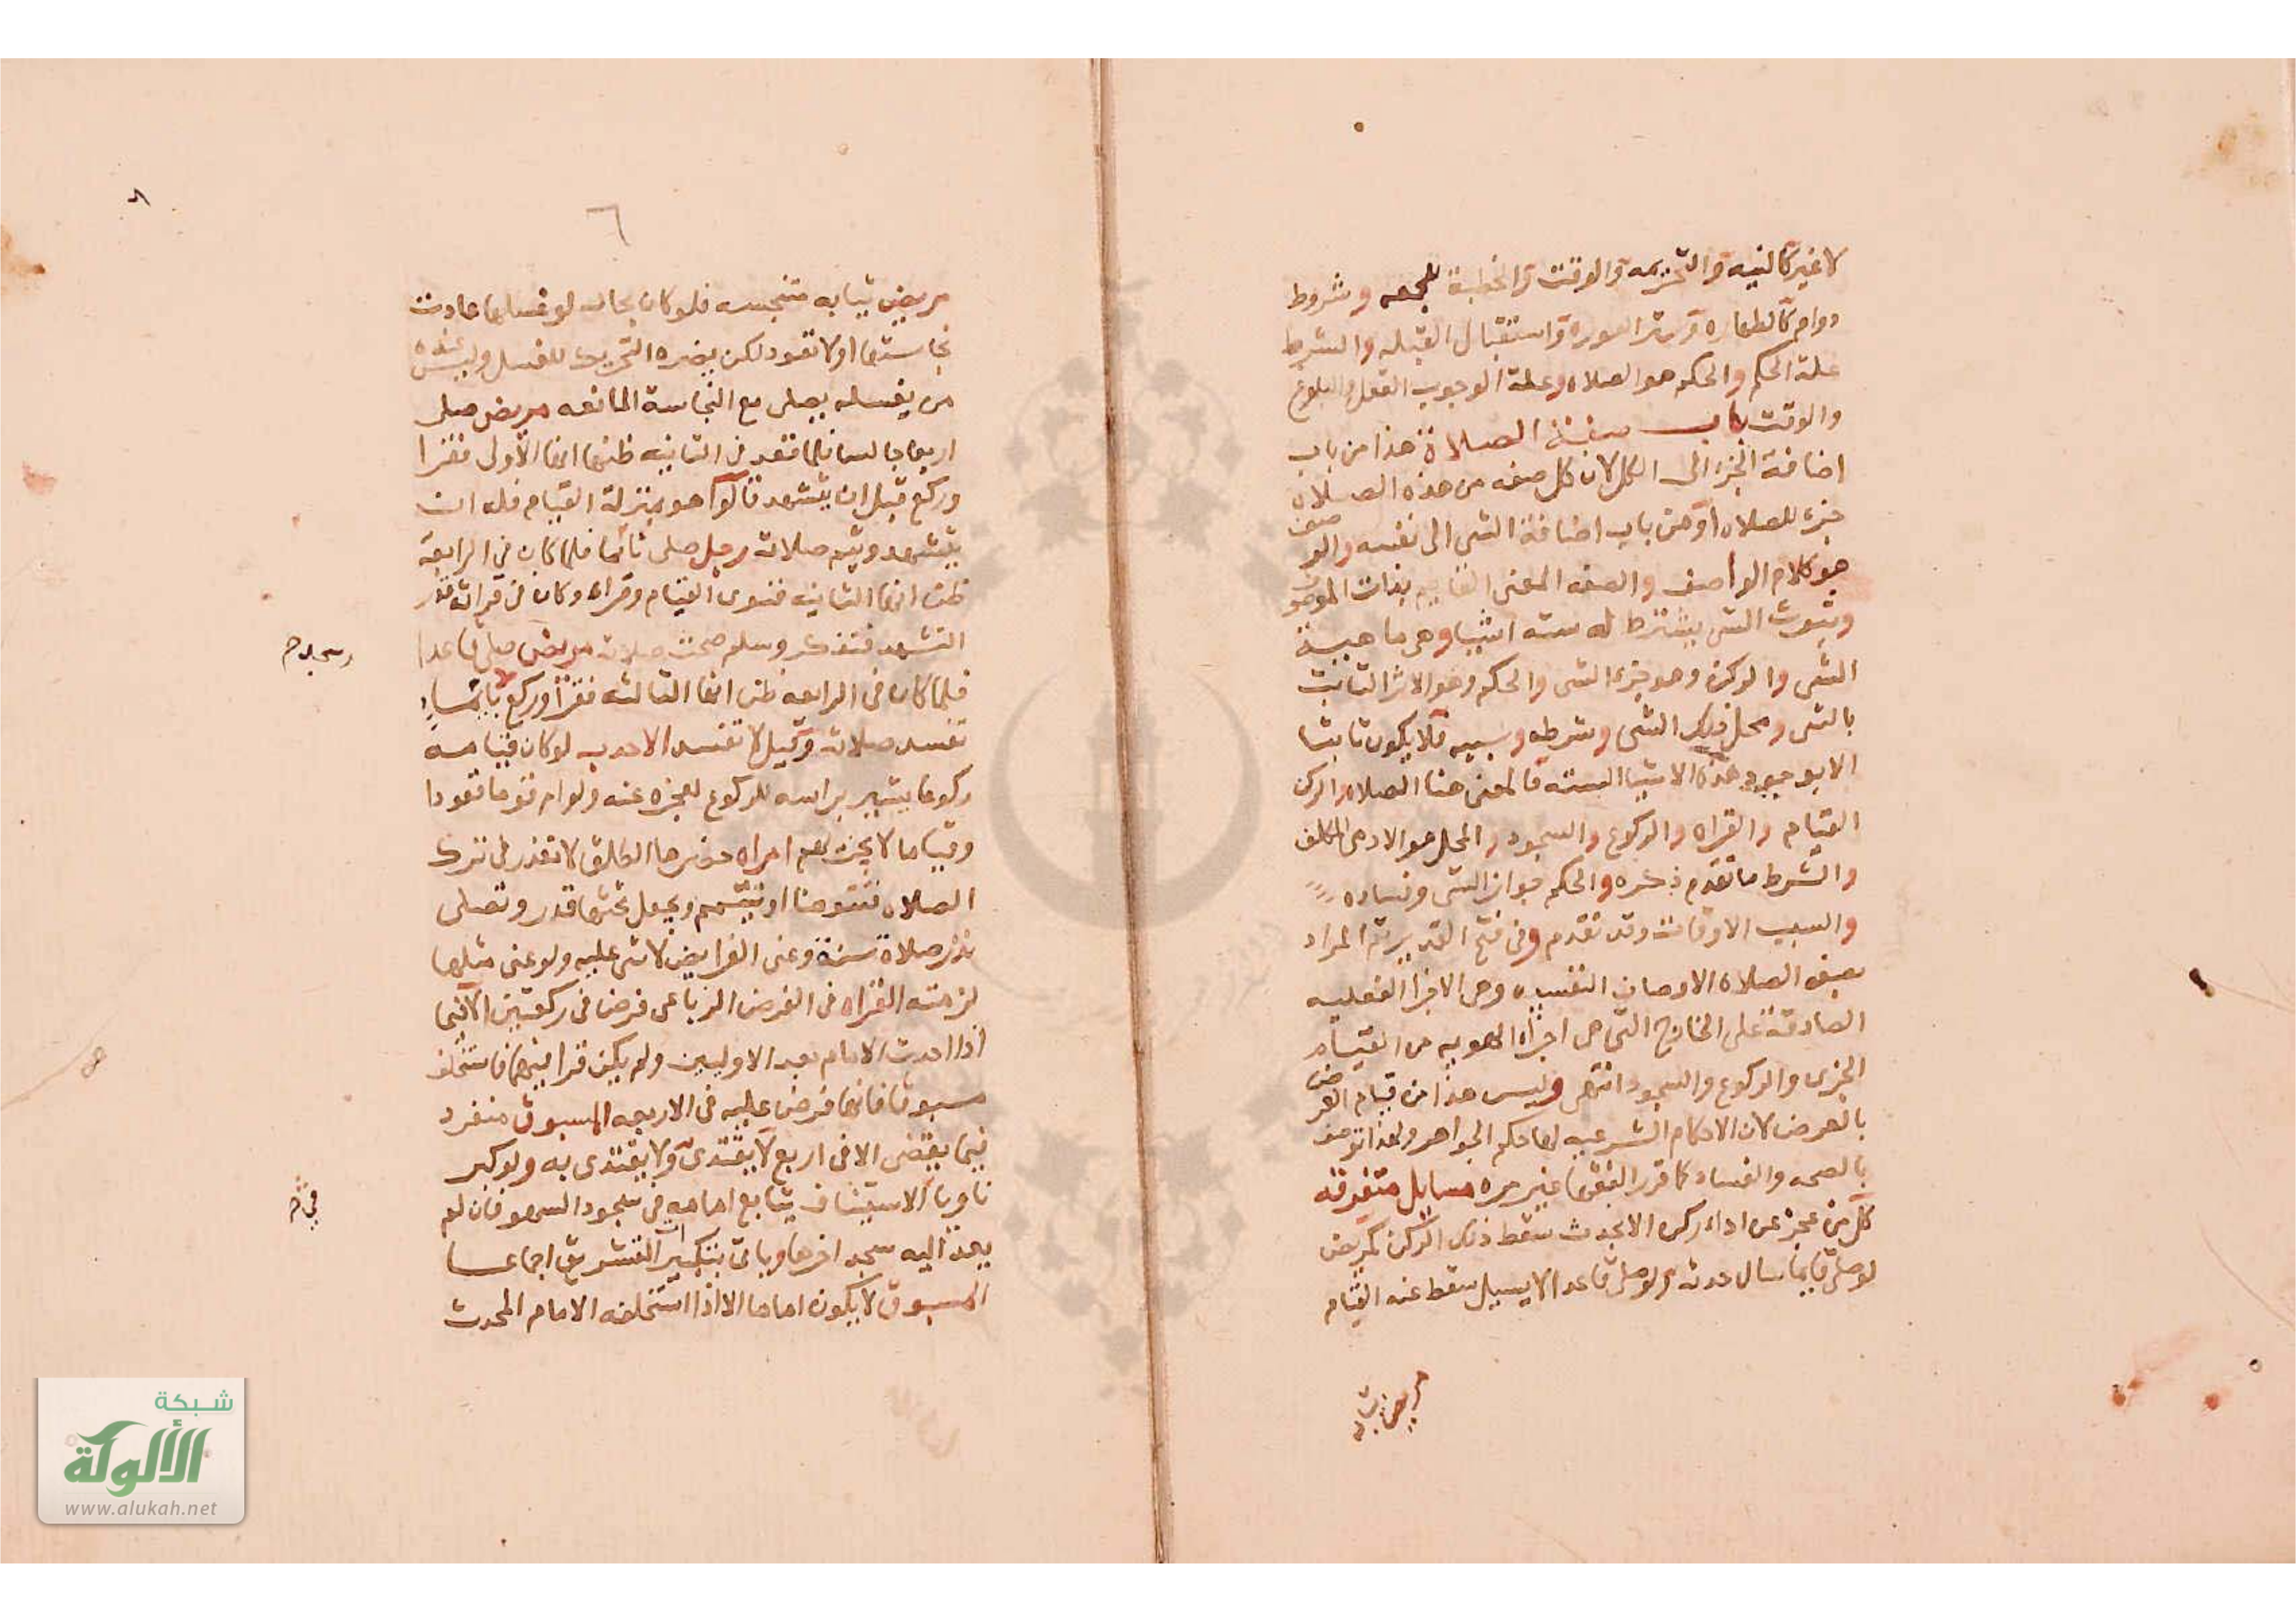 لا غير كالنيه والتحريمه والوقت والخطبة للجمعه وشروط
دوام كالطهاره وستر العوره واستقبال القبله والشرط
علة الحكم والحكم هو الصلاه وعلة الوجوب العقل والبلوغ
والوقت باب صفة الصلاة هذا من باب
اضافة الجزء الى الكل لان كل صفه من هذه الصلاة
جزء للصلاه او من باب اضافة الشى الى نفسه والوصف
هو كلام الواصف والصفه المعنى القايم بذات الموصوف
وثبوت الشى يشترط له ستة اشيا وهى ماهية
الشى والركن وهو جزء الشى والحكم وهو الاثر الثابت
بالشى ومحل ذلك الشى وشرطه وسببه فلا يكون ثابتا
الا بوجود هذه الاشيا السته فالمعنى هنا الصلاه والركن
القيام والقراه والركوع والسجود والمحل هو الادمى المكلف
والشرط ما تقدم ذكره والحكم جواز الشى وفساده
والسبب الاوقات وقد تقدم وفى فتح القدير ثم المراد
بصفة الصلاه الاوصاف النفسيه وهى الاجزا الفعليه
الصادقة على الخارج التى هى اجزاء الهويه من القيام
الجزى والركوع والسجود انتهى وليس هذا من قيام العرض
بالعرض لان الاحكام الشرعيه لها حكم الجواهر ولهذا توصف
بالصحه والفساد كما قرر الفقها غير مره مسايل متفرقه
كل من عجز عن اداء ركن الا بحدث سقط ذلك الركن كمريض
لو صلى قايما سال حدثه ولو صلى قاعدا لا يسيل سقط عنه القيام
مريض ثيابه
٦
مريض ثيابه متنجسه فلو كان بحال لو غسلها عادت
نجاستها او لا تعود لكن يضره التحريك للغسل وليس عنده
من يغسله يصلى مع النجاسة المانعه مريض صلى
اربعا جالسا فلما قعد فى الثانيه ظنها انها الاولى فقرا
وركع قبل ان يتشهد قالوا هو بمنزلة القيام فله ان
يتشهد ويتم صلاته رجل صلى قائما فلما كان فى الرابعة
ظن انها الثانيه فنوى القيام وقراه وكان فى قراته قدر
التشهد فتذكر وسلم صحت صلاته مريض صلى قاعدا
وسجد م
فلما كان فى الرابعه ظن انها الثالثه فقرا وركع بايماء
تفسد صلاته وقيل لا تفسد الاحدب لو كان قيامه
ركوعا يشير براسه للركوع لعجزه عنه ولو ام قوما قعودا
وقياما لا يجزيهم امراه حضرها الطلق لا تعذر فى ترك
الصلاه فتتوضا او تتيمم ويجعل تحتها قدر وتصلى
نذر صلاة سنة وعنى الفرايض لا شى عليه ولو عنى مثلها
لزمته القراه فى الفرض الرباعى فرض فى ركعتين الا فيما
اذا احدث الامام بعد الاوليين ولم يكن قرا فيهما فاستخلف
مسبوقا فانها فرض عليه فى الاربعه المسبوق منفرد
فيما يقضى الا فى اربع لا يقتدى ولا يقتدى به ولو كبر
ناويا الاستيناف يتابع امامه فى سجود السهو فان لم
فى م
يعد اليه سجد اخرها وياتى بتكبير التشريق اجماعا
المسبوق لا يكون اماما الا اذا استخلفه الامام المحدث
شبكة
الألوكة
www.alukah.net